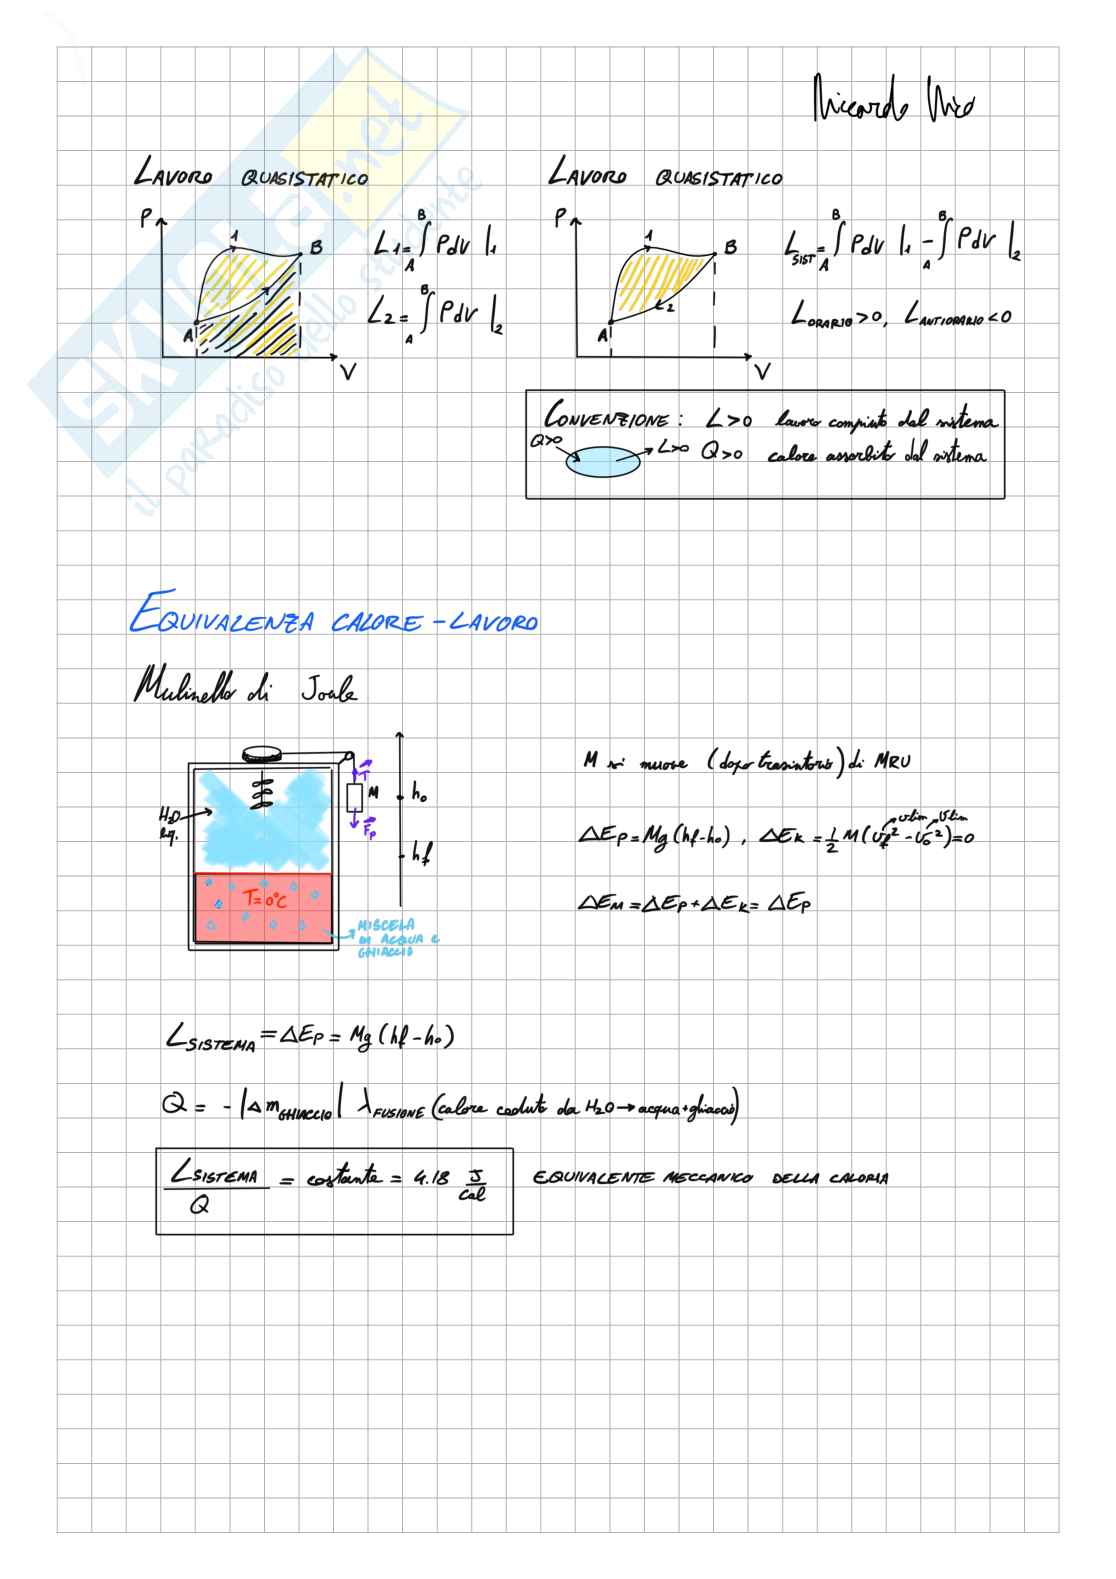 Riccardo Nico
LAVORO QUASISTATICO
P
1
B
A
V
L1 = ∫_A^B PdV |1
L2 = ∫_A^B PdV |2
LAVORO QUASISTATICO
P
1
B
2
A
V
L_SIST = ∫_A^B PdV |1 - ∫_A^B PdV |2
L_ORARIO > 0, L_ANTIORARIO < 0
CONVENZIONE: L>0 lavoro compiuto dal sistema
Q>0 L>0 Q>0 calore assorbito dal sistema
EQUIVALENZA CALORE-LAVORO
Mulinello di Joule
T
M
Fp
h0
hf
H2O
liq.
T=0°C
MISCELA
DI ACQUA E
GHIACCIO
M si muove (dopo transitorio) di MRU
vlim vlim
ΔEp = Mg(hf-h0), ΔEk = 1/2 M(vf² - v0²) = 0
ΔEM = ΔEp + ΔEk = ΔEp
L_SISTEMA = ΔEp = Mg(hf-h0)
Q = -|Δm_GHIACCIO| λ_FUSIONE (calore ceduto da H2O → acqua+ghiaccio)
L_SISTEMA / Q = costante = 4.18 J/cal EQUIVALENTE MECCANICO DELLA CALORIA
SKUOLA.net
il paradiso dello studente